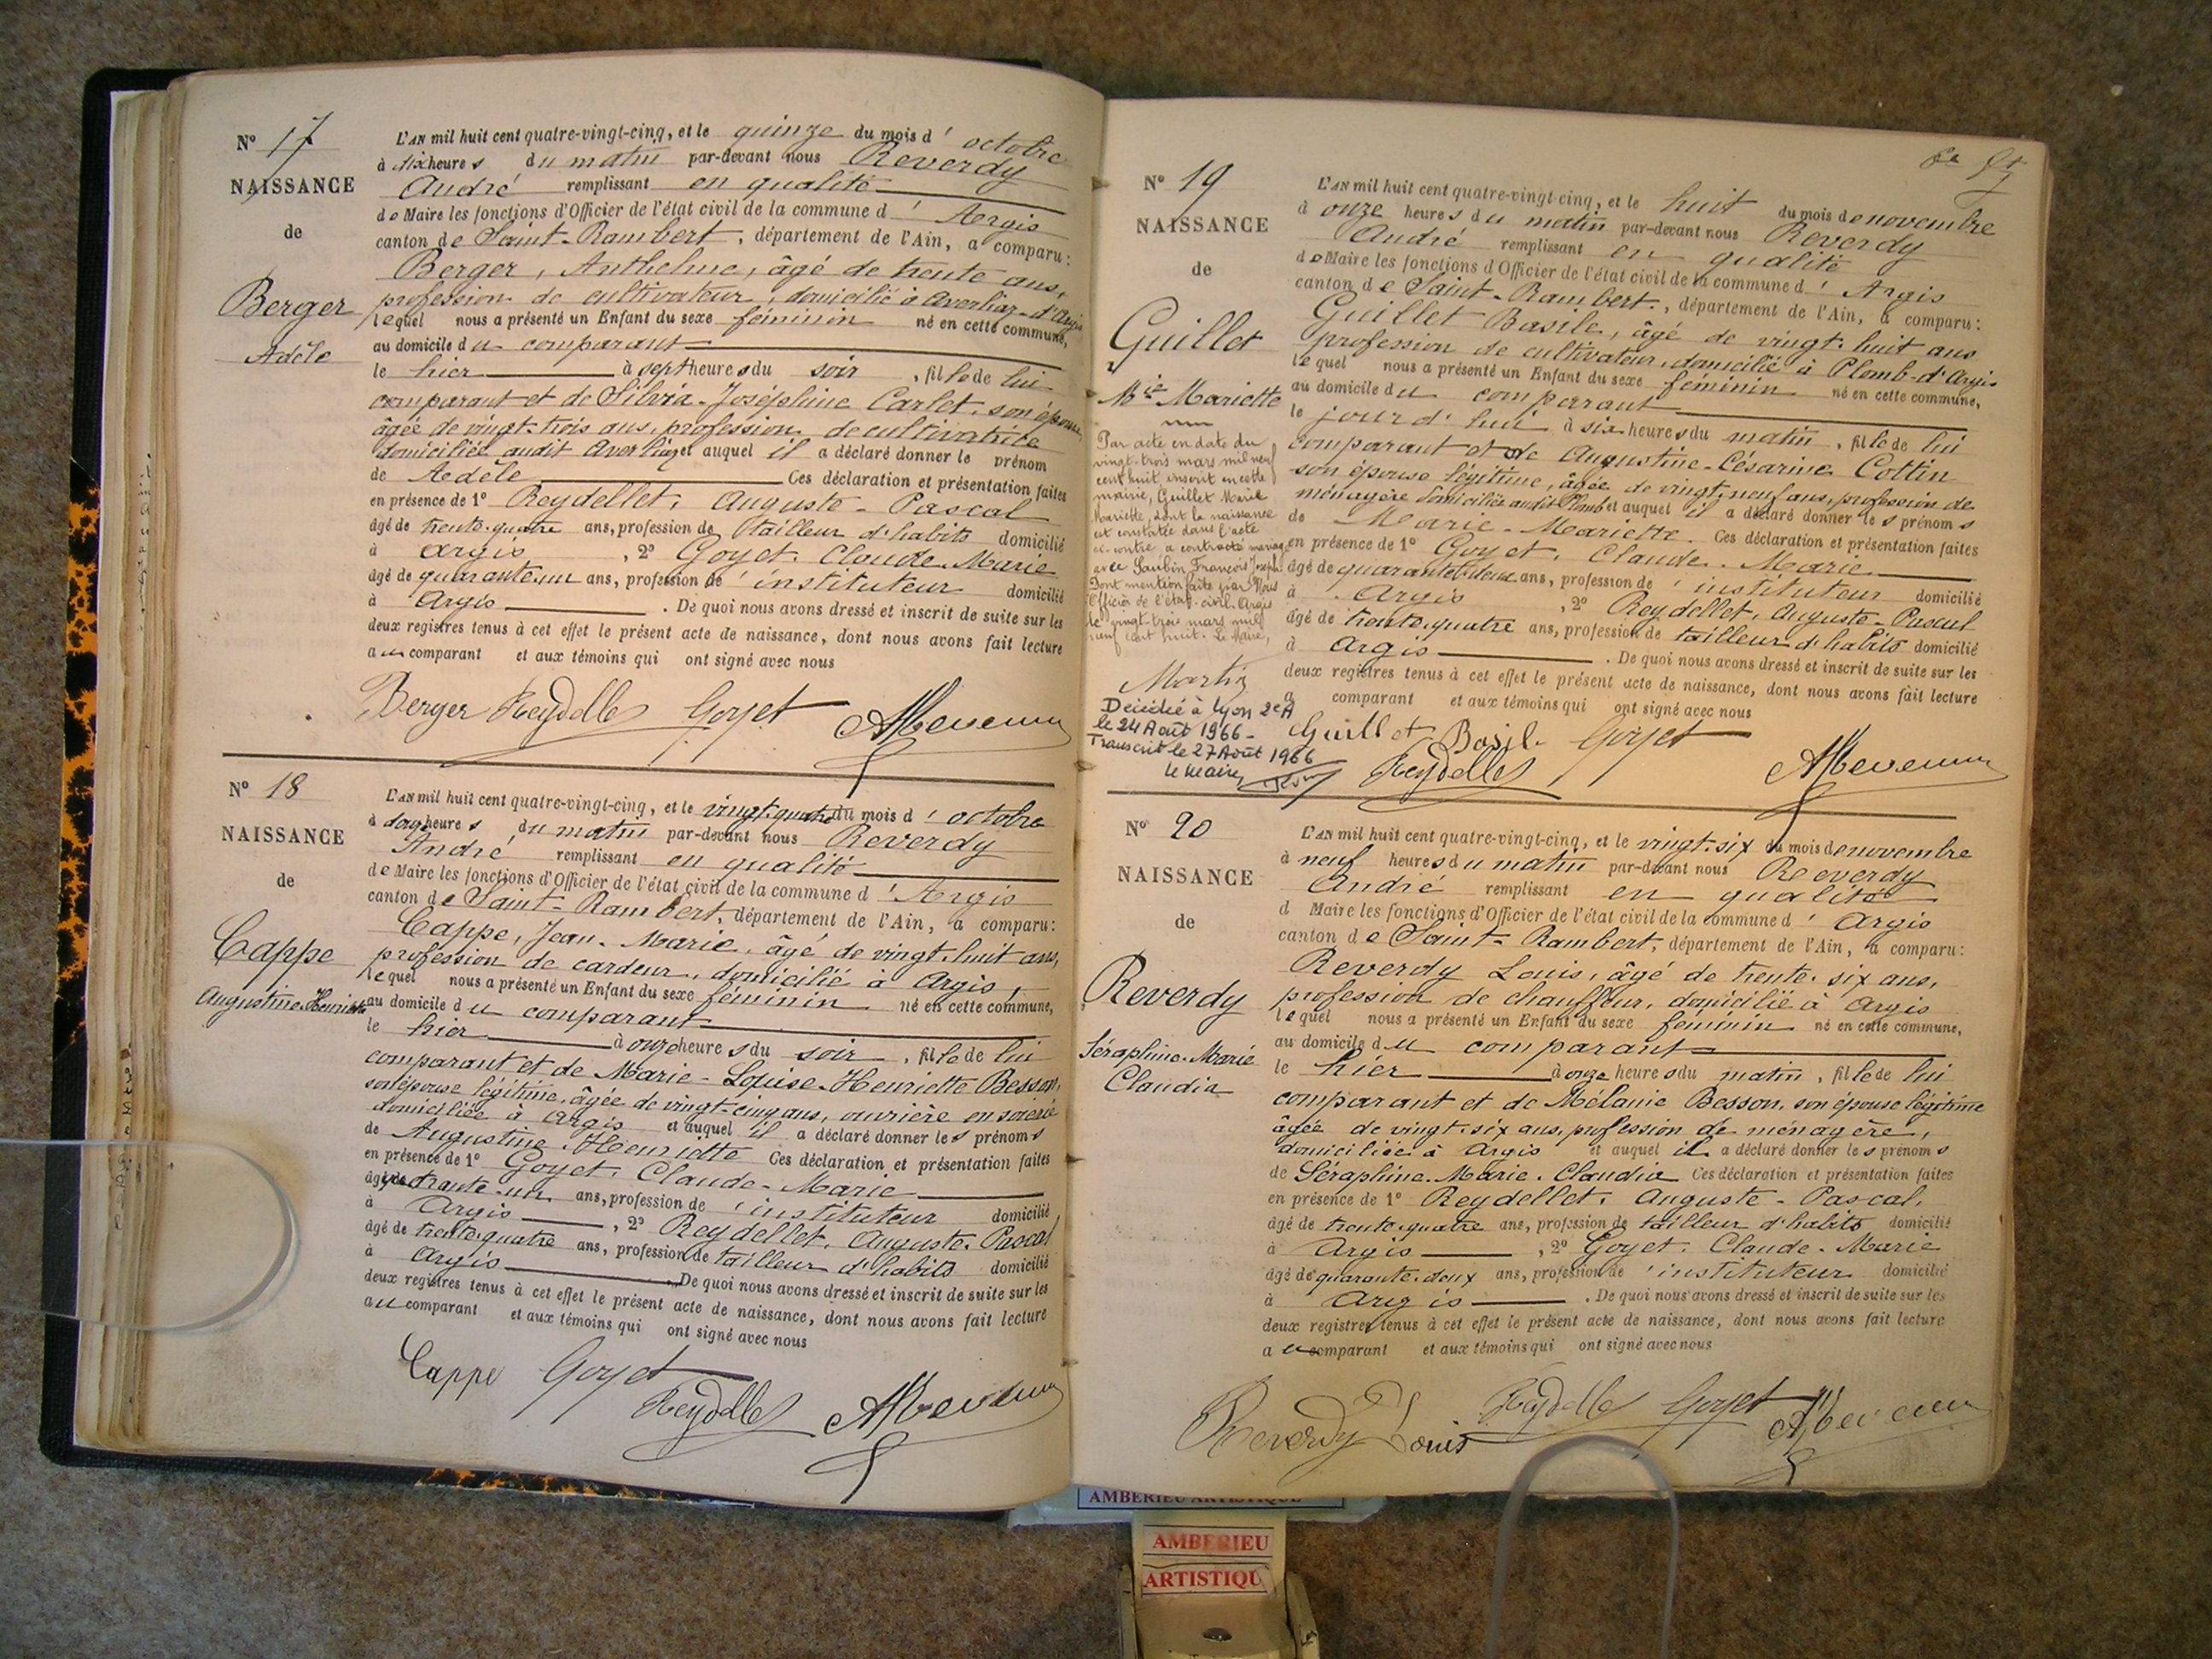 N° 17
NAISSANCE
de
Berger
Adèle
L'AN mil huit cent quatre-vingt-cinq, et le quinze du mois d' octobre
à dix heures du matin par-devant nous Reverdy
André remplissant en qualité
de Maire les fonctions d'Officier de l'état civil de la commune d' Argis
canton de Saint-Rambert, département de l'Ain, a comparu:
Berger, Anthelme, âgé de trente ans,
profession de cultivateur, domicilié à Averliaz-d'Argis
lequel nous a présenté un Enfant du sexe féminin né en cette commune,
au domicile du comparant
le hier à sept heures du soir, fille de lui
comparant et de Silvia-Joséphine Carlet, son épouse
âgée de vingt-trois ans, profession de cultivatrice
domiciliée audit Averliaz et auquel il a déclaré donner le prénom
de Adèle Ces déclaration et présentation faites
en présence de 1° Reydellet, Auguste-Pascal
âgé de trente-quatre ans, profession de tailleur d'habits domicilié
à Argis, 2° Goyet, Claude-Marie
âgé de quarante-un ans, profession d' instituteur domicilié
à Argis. De quoi nous avons dressé et inscrit de suite sur les
deux registres tenus à cet effet le présent acte de naissance, dont nous avons fait lecture
au comparant et aux témoins qui ont signé avec nous
Berger Reydellet Goyet
N° 18
NAISSANCE
de
Cappe
Augustine-Henriette
L'AN mil huit cent quatre-vingt-cinq, et le vingt-quatre du mois d' octobre
à heures du matin par-devant nous Reverdy
André remplissant en qualité
de Maire les fonctions d'Officier de l'état civil de la commune d' Argis
canton de Saint-Rambert, département de l'Ain, a comparu:
Cappe, Jean-Marie, âgé de vingt-huit ans,
profession de cardeur, domicilié à Argis,
lequel nous a présenté un Enfant du sexe féminin né en cette commune,
au domicile du comparant
le hier à onze heures du soir, fille de lui
comparant et de Marie-Louise-Henriette Besson,
son épouse légitime, âgée de vingt-cinq ans, ouvrière en soierie
domiciliée à Argis et auquel il a déclaré donner les prénoms
de Augustine-Henriette Ces déclaration et présentation faites
en présence de 1° Goyet, Claude-Marie
âgé de quarante-un ans, profession d' instituteur domicilié
à Argis, 2° Reydellet, Auguste-Pascal
âgé de trente-quatre ans, profession de tailleur d'habits domicilié
à Argis De quoi nous avons dressé et inscrit de suite sur les
deux registres tenus à cet effet le présent acte de naissance, dont nous avons fait lecture
au comparant et aux témoins qui ont signé avec nous
Cappe Goyet
Reydellet
N° 19
NAISSANCE
de
Guillet
Mie Mariette
Par acte en date du
vingt-trois mars mil neuf
cent huit, inscrit en cette
mairie, Guillet Marie
Mariette, dont la naissance
est constatée dans l'acte
ci-contre a contracté mariage
avec Saubin, François Joseph
Dont mention faite par Nous
Officier de l'état-civil. Argis
le vingt-trois mars mil
neuf cent huit. Le Maire,
Martin
Décédée à Lyon 2eA
le 24 Août 1966-
Transcrit le 27 Août 1966
Le Maire
L'AN mil huit cent quatre-vingt-cinq, et le huit du mois de novembre
à onze heures du matin par-devant nous Reverdy
André remplissant en qualité
de Maire les fonctions d'Officier de l'état civil de la commune d' Argis
canton de Saint-Rambert, département de l'Ain, a comparu:
Guillet Basile, âgé de vingt-huit ans
profession de cultivateur, domicilié à Plomb-d'Argis
lequel nous a présenté un Enfant du sexe féminin né en cette commune,
au domicile du comparant
le jour d'hui à six heures du matin, fille de lui
comparant et de Augustine-Césarine Cottin
son épouse légitime, âgée de vingt-neuf ans, profession de
ménagère domiciliée audit Plomb et auquel il a déclaré donner les prénoms
de Marie-Mariette. Ces déclaration et présentation faites
en présence de 1° Goyet, Claude-Marie
âgé de quarante-deux ans, profession d' instituteur domicilié
à Argis, 2° Reydellet, Auguste-Pascal
âgé de trente-quatre ans, profession de tailleur d'habits domicilié
à Argis. De quoi nous avons dressé et inscrit de suite sur les
deux registres tenus à cet effet le présent acte de naissance, dont nous avons fait lecture
a comparant et aux témoins qui ont signé avec nous
Guillet Basile Goyet
Reydellet
N° 20
NAISSANCE
de
Reverdy
Séraphine-Marie
Claudia
L'AN mil huit cent quatre-vingt-cinq, et le vingt-six du mois de novembre
à neuf heures du matin par-devant nous Reverdy
André remplissant en qualité
d Maire les fonctions d'Officier de l'état civil de la commune d' Argis
canton de Saint-Rambert, département de l'Ain, a comparu:
Reverdy Louis, âgé de trente-six ans,
profession de chauffeur, domicilié à Argis
lequel nous a présenté un Enfant du sexe féminin né en cette commune,
au domicile du comparant
le hier à onze heures du matin, fille de lui
comparant et de Mélanie Besson, son épouse légitime
âgée de vingt-six ans, profession de ménagère,
domiciliée à Argis et auquel il a déclaré donner les prénoms
de Séraphine-Marie-Claudia Ces déclaration et présentation faites
en présence de 1° Reydellet, Auguste-Pascal,
âgé de trente-quatre ans, profession de tailleur d'habits domicilié
à Argis, 2° Goyet, Claude-Marie
âgé de quarante-deux ans, profession d' instituteur domicilié
à Argis. De quoi nous avons dressé et inscrit de suite sur les
deux registres tenus à cet effet le présent acte de naissance, dont nous avons fait lecture
au comparant et aux témoins qui ont signé avec nous
Reverdy Louis Reydellet Goyet
AMBERIEU ARTISTIQUE
AMBERIEU
ARTISTIQU